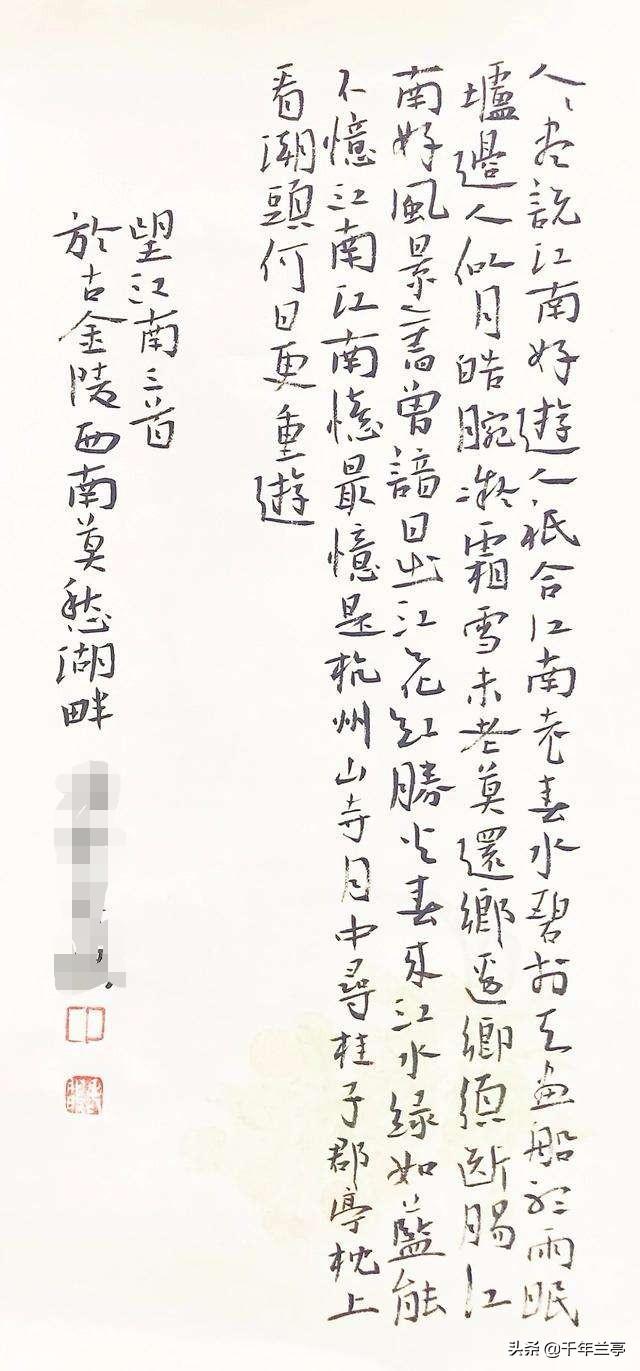 人々尽説江南好遊人祇合江南老春水碧於天画船聴雨眠
壚邊人似月皓腕凝霜雪未老莫還鄉還鄉須断腸江
南好風景舊曽諳日出江花紅勝火春来江水緑如藍能
不憶江南江南憶最憶是杭州山寺月中尋桂子郡亭枕上
看潮頭何日更重遊
望江南三首
於古金陵西南莫愁湖畔
头条 @千年兰亭